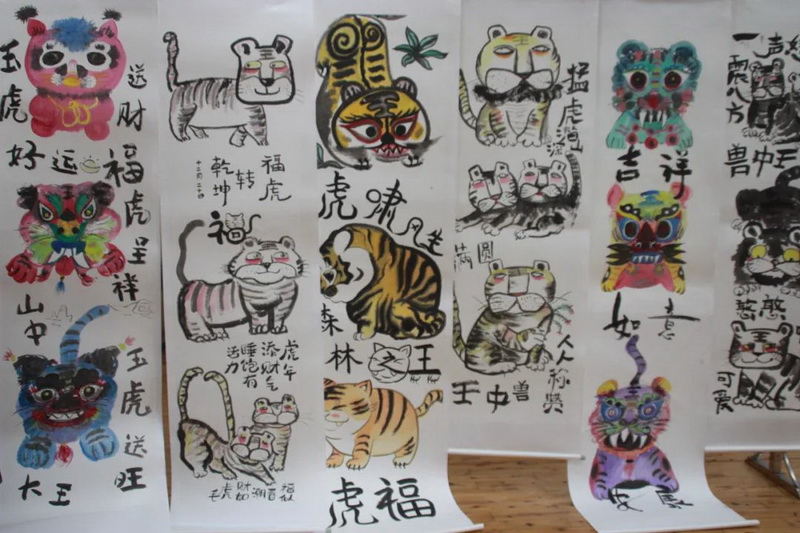 玉虎
送财
好运
福虎呈祥
山中
大王
玉虎
送旺
福虎
转
乾坤
十二月二十四
福
虎年
添财气
睡饱有
活力
虎啸风生
森林之王
虎福
猛虎
满圆
人人称赞
吉祥
如意
一声
震八方
兽中王
憨憨
可爱